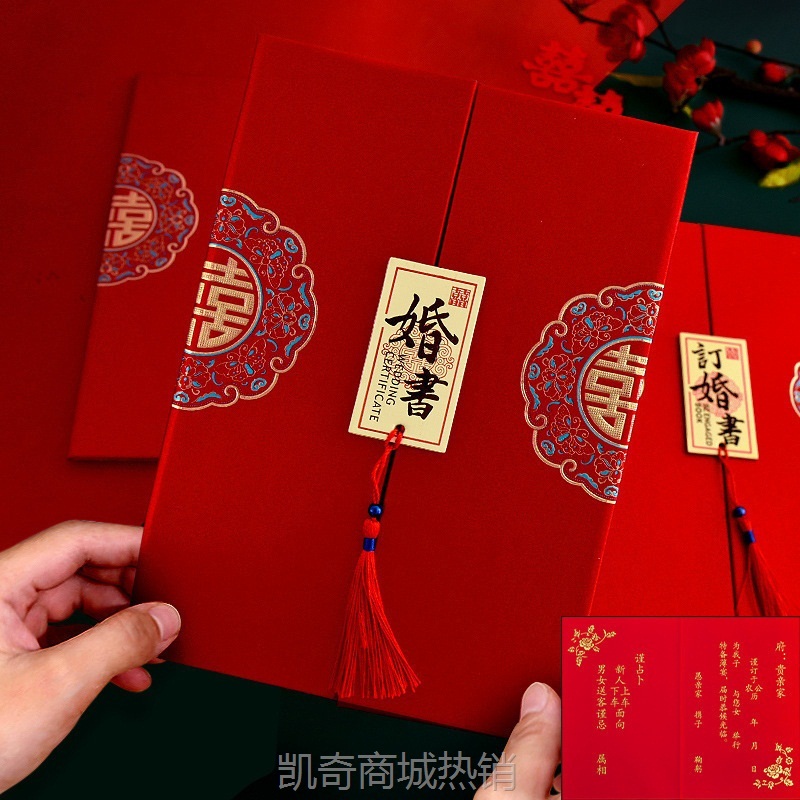 囍
囍
囍
囍
囍
婚書
WEDDING
CERTIFICATE
訂婚書
BE ENGAGED
BOOK
府：贵亲家
谨订于公历 年 月 日
农
为我子 与您女 举行
特备薄宴，届时恭候光临。
愚亲家 携子 鞠躬
谨占卜
新人上车面向
下车
男女送客谨忌 属相
凯奇商城热销